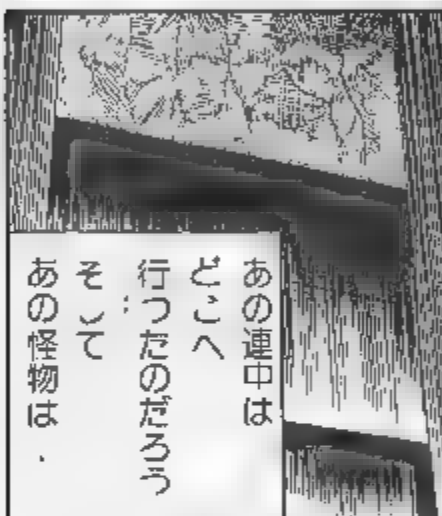 あの連中は
どこへ
行つたのだろう
そして
あの怪物は・